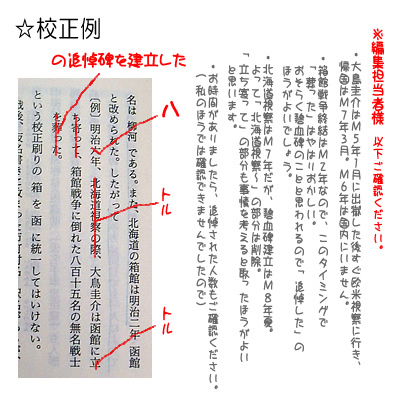 ☆校正例
※編集担当者様 以下ご確認ください。
・大鳥圭介はM5年1月に出獄した後すぐ欧米視察に行き、
帰国はM7年3月。M6年は国内にいません。
・箱館戦争終結はM2年なので、このタイミングで
「葬った」はやはりおかしい。
おそらく碧血碑のことと思われるので「追悼した」の
ほうがよいでしょう。
・北海道視察はM7年だが、碧血碑建立はM8年夏。
よって「北海道視察〜」の部分は削除。
「立ち寄って」の部分も事情を考えると取ったほうがよい
と思います。
・お時間がありましたら、追悼された人数もご確認ください。
(私のほうでは確認できませんでしたので)
の追悼碑を建立した
八
トル
トル
名は 柳河 である。また、北海道の箱館は明治二年 函館
と改められた。したがって
〔例〕明治六年、北海道視察の際、大鳥圭介は函館に立
ち寄って、箱館戦争に倒れた八百十五名の無名戦士
を葬った。
という校正刷りの 箱 を 函 に統一してはいけない。